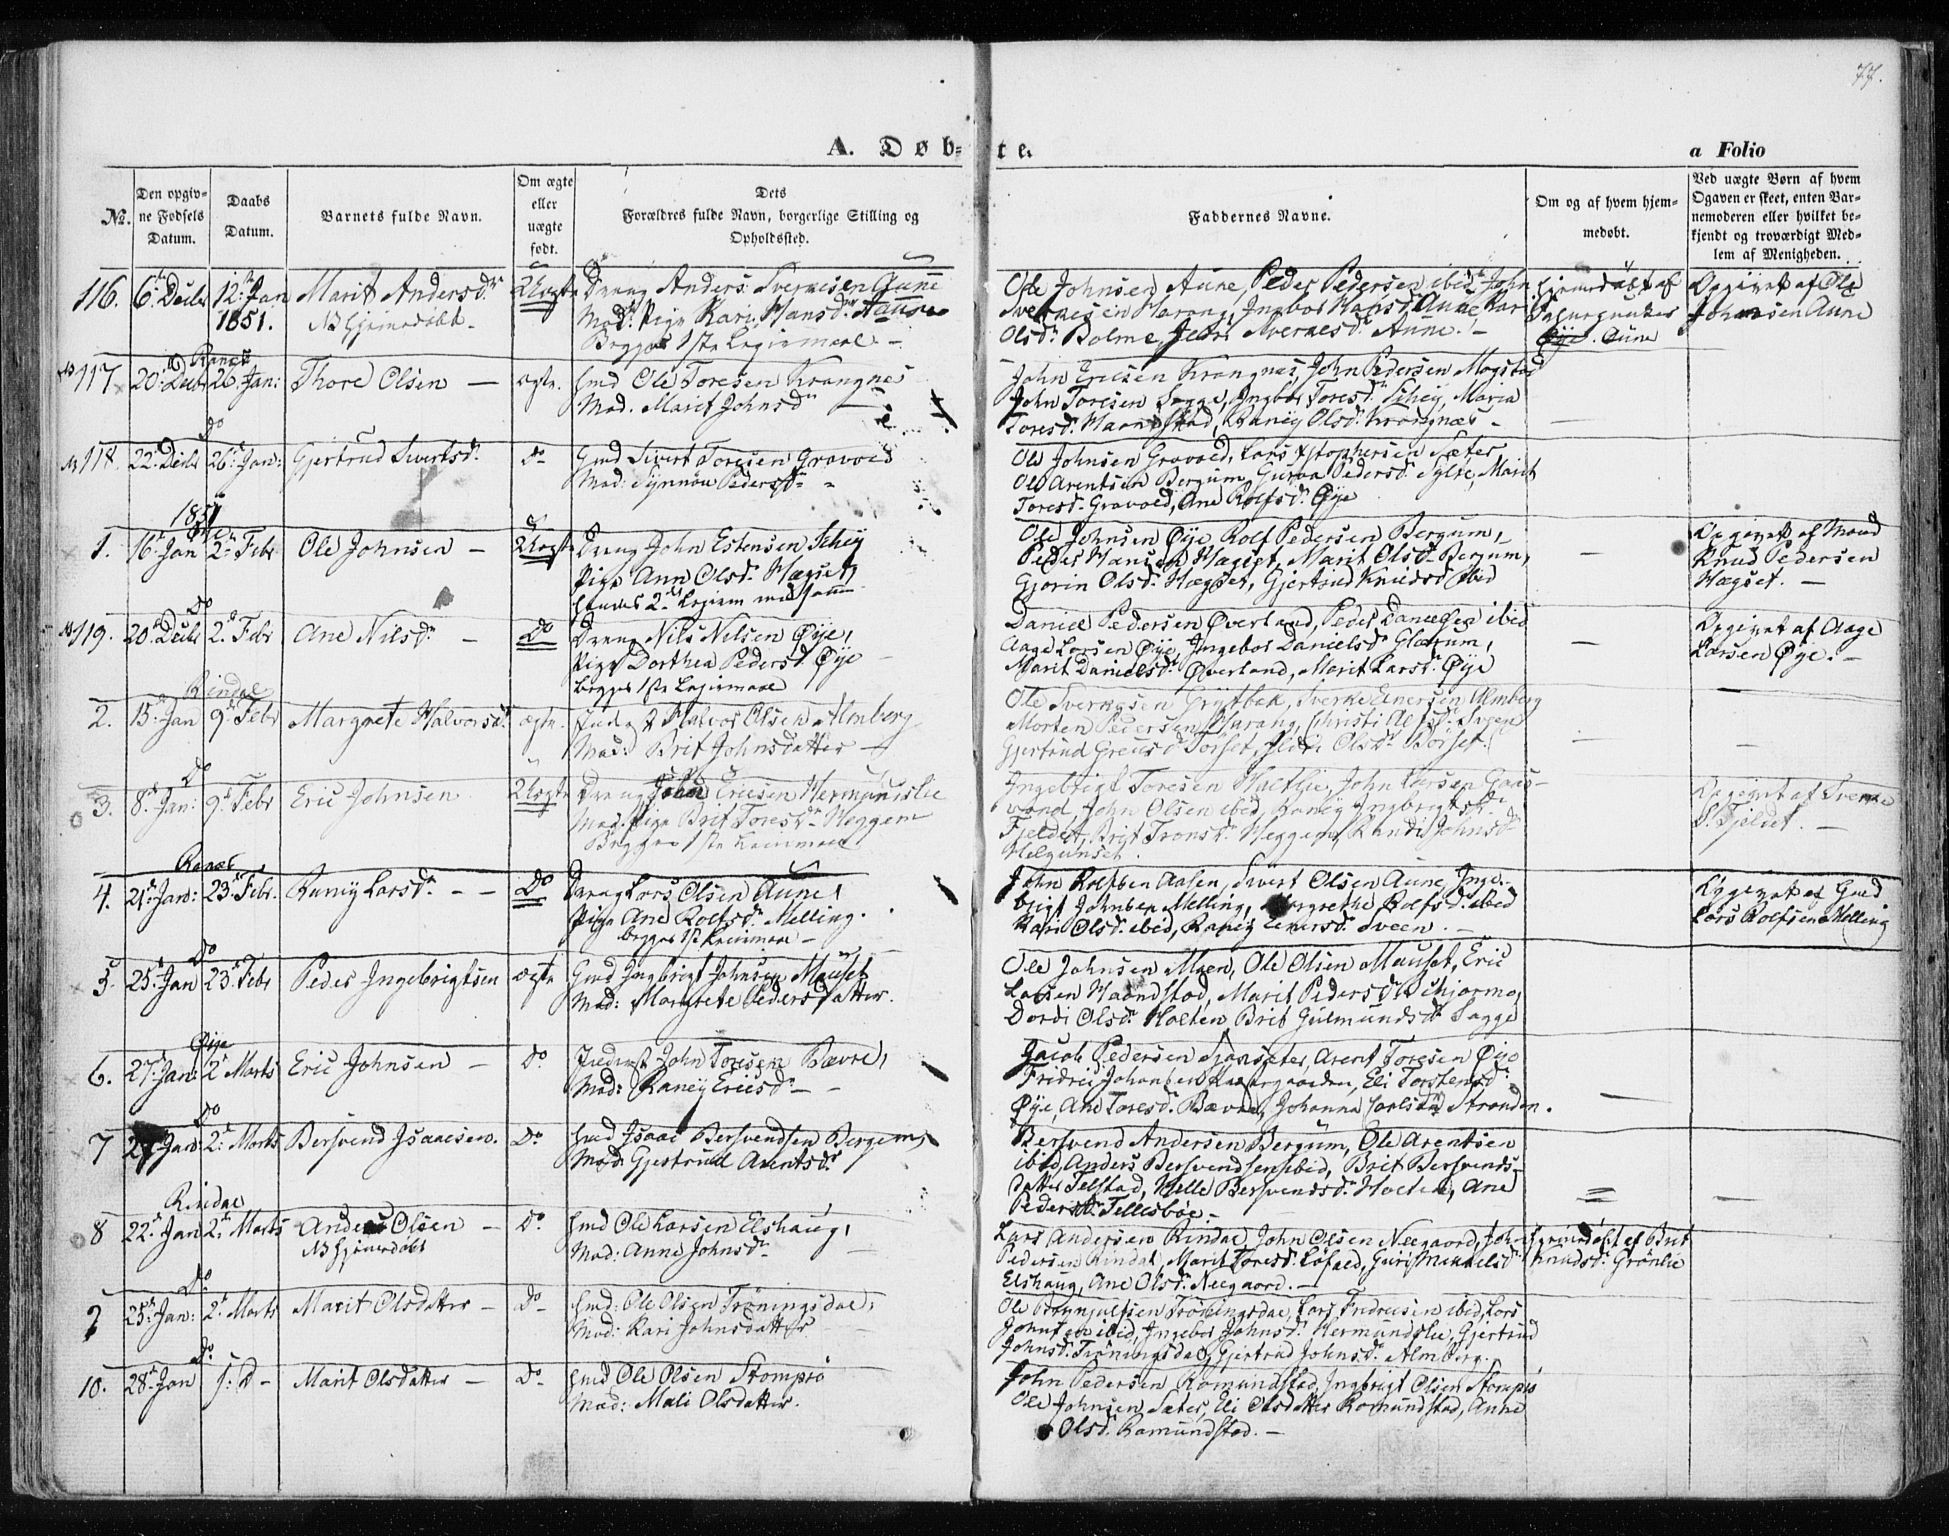 77.
A. Døb=
te.
a Folio
No.
Den opgiv=
ne Fødsels
Datum.
Daabs
Datum.
Barnets fulde Navn.
Om ægte
eller
uægte
født.
Dets
Forældres fulde Navn, borgerlige Stilling og
Opholdssted.
Faddernes Navne.
Om og af hvem hjem=
medøbt.
Ved uægte Børn af hvem
Opgaven er skeet, enten Bar=
nemoderen eller hvilket be=
kjendt og troværdigt Med=
lem af Menigheden.
116. 6. Decbr 12. Jan
1851.
Marit Andersdr
NB Hjemedøbt
Uægte
Dreng Anders Sverkesen Aune
Mod. Pige Kari Hansdr
Begges 1ste Leiermaal
Ole Johnsen Aune, Peder Pedersen ibid John
Sverkesen Harang, Ingebor Hansdr Aune, Kari
Olsdr Bolme, Sverkesdr Aune.
Hjemedøbt af
Øye. Aune
Opgivet af Ole
Johnsen Aune
Ranes
117 20. Decbr 26. Jan:
Thore Olsen —
ægte.
Gmd Ole Toresen Krangnes
Mod. Marit Johnsdr
John Ericsen Krangnes, John Pedersen Mogstad
John Toresen Sogge, Ingebor Toresdr Schey, Maria
Toresdr Haandstad, Raney Olsdr Krangnæs
Do
118. 22. Decbr 26. Jan:
Gjertrud Sivertsdr
Do
Gmd Sivert Toresen Gravoed
Mod: Synnøu Pedersdr
Ole Johnsen Gravoed, Lars Xstophersen Sæter
Ole Arentsen Bergum, Guroa Pedersdr Sylte, Marit
Toresdr Gravoed, Ane Rolfsdr Øye
1851
Øye
1. 16. Jan 2. Febr
Ole Johnsen —
Uægte
Dreng John Estensen Schey
Pige Ann Olsdr Hægset,
hendes 2det Leierm med samme
Ole Johnsen Øye, Rolf Pedersen Bergum,
Peder Hansen Hægset, Marit Olsdr Bergum,
Gjorin Olsdr Hægset, Gjertrud Knudsdr ibid
Opgivet af Mand
Knud Pedersen
Hægset. —
Do
119. 20. Decbr 2. Febr
Ane Nilsdr —
Do
Dreng Nils Nilsen Øye,
Pige Dorthea Pedersdr Øye
begges 1ste Leiermaal
Daniel Pedersen Øverland, Peder Danielsen ibid
Aage Larsen Øye, Ingebor Danielsdr Glærum,
Marit Danielsdr Øverland, Marit Larsdr Øye
Opgivet af Aage
Larsen Øye. —
Rindal
2. 15. Jan 9. Febr
Margrete Halvorsdr
ægte.
Halvor Olsen Almberg
Mod: Brit Johnsdatter —
Ole Sverkesen Grytbak, Sverke Einersen Almberg
Morten Pedersen Harang, Christi Svege
Gjertrud Torset, Ildri Olsdr Børset.
Do
3. 8. Jan: 9. Febr
Eric Johnsen
Uægte
Dreng John Ericsen Hermundslie
Mod. Pige Brit Toresdr Heggem
Begges 1ste Leiermaal
Ingebrigt Toresen Holtlie, John Larsen Gaas-
vand, John Olsen ibid, Raney Ingebrigtsdr
Fjeldet, Brit Tronsdr Heggem, Randi Johnsdr
Helgenset.
Opgivet af Sverke
Fjeldet. —
Ranes
4. 21. Jan: 23. Febr.
Raney Larsdr —
Do
Dreng Lars Olsen Aune,
Pige Ane Rolfsdr Melling.
begges 1ste Leiermaal —
John Rolfsen Aasen, Sivert Olsen Aune, Inge-
brigt Johnsen Melling, Margrethe Rolfsdr ibid
Kari Olsdr ibid, Raney Einersdr Sveen. —
Opgivet af Gmd
Lars Rolfsen Melling
Do
5. 25. Jan 23. Febr
Peder Ingebrigtsen
ægte
Gmd Ingbrigt Johnsen Mauset
Mod: Margrete Pedersdatter.
Ole Johnsen Moen, Ole Olsen Mauset, Eric
Larsen Haandstad, Marit Pedersdr Schjærmo,
Dordi Olsdr Holten Brit Gulmundsdr Sogge
Øye
6. 27. Jan: 2. Marts
Eric Johnsen —
Do
Inderst John Toresen Bævre,
Mod: Raney Ericsdr —
Jacob Pedersen Sjønsæter, Arent Toresen Øye
Fridric Johansen, Eli Torstensdr
Øye, Ane Toresdr Bævre, Johanna Carlsdr Stranden.
Do
7 27. Jan: 2. Marts
Bersvend Isaacsen.
Do
Gmd Isaac Bersvendsen Bergem,
Mod: Gjertrud Arentsdr
Bersvend Andersen Bergum, Ole Arentsen
ibid, Anders Bersvendsen ibid, Brit Bersvends-
datter Telstad, Mille Bersvendsdr Holten, Ane
Pedersdr Tellesbøe. —
Rindal
8 22. Jan 2. Marts
Anders Olsen —
NB Hjemmedøbt
Do
Gmd Ole Larsen Elshaug,
Mod: Anne Johnsdr
Lars Andersen Rindal, John Olsen Neegaard, John
Pedersen Rindal, Marit Toresdr Løfald, Guri Mikkelsdr
Elshaug, Ane Olsdr Neegaard. —
Hjemedøbt af Brit
Knudsdr Grønlie
Do
9 25. Jan: 2. Marts
Marit Olsdatter —
Do
Gmd: Ole Olsen Trøningsdal,
Mod: Kari Johnsdatter
Ole Brynjulfsen Trøningsdal, Lars Endresen ibid, Lars
Johnsen ibid, Ingebor Johnsdr Hermundslie, Gjertrud
Johnsdr Trøningsdal, Gjertrud Johnsdr Almberg.
Do
10. 28. Jan s: D —
Marit Olsdatter —
Do
Gmd Ole Olsen Stomprø
Mod: Mali Olsdatter.
John Pedersen Romundstad, Ingbrigt Olsen Stomprø
Ole Johnsen Sæter, Eli Olsdatter Romundstad, Anne
Olsdr Romundstad. —